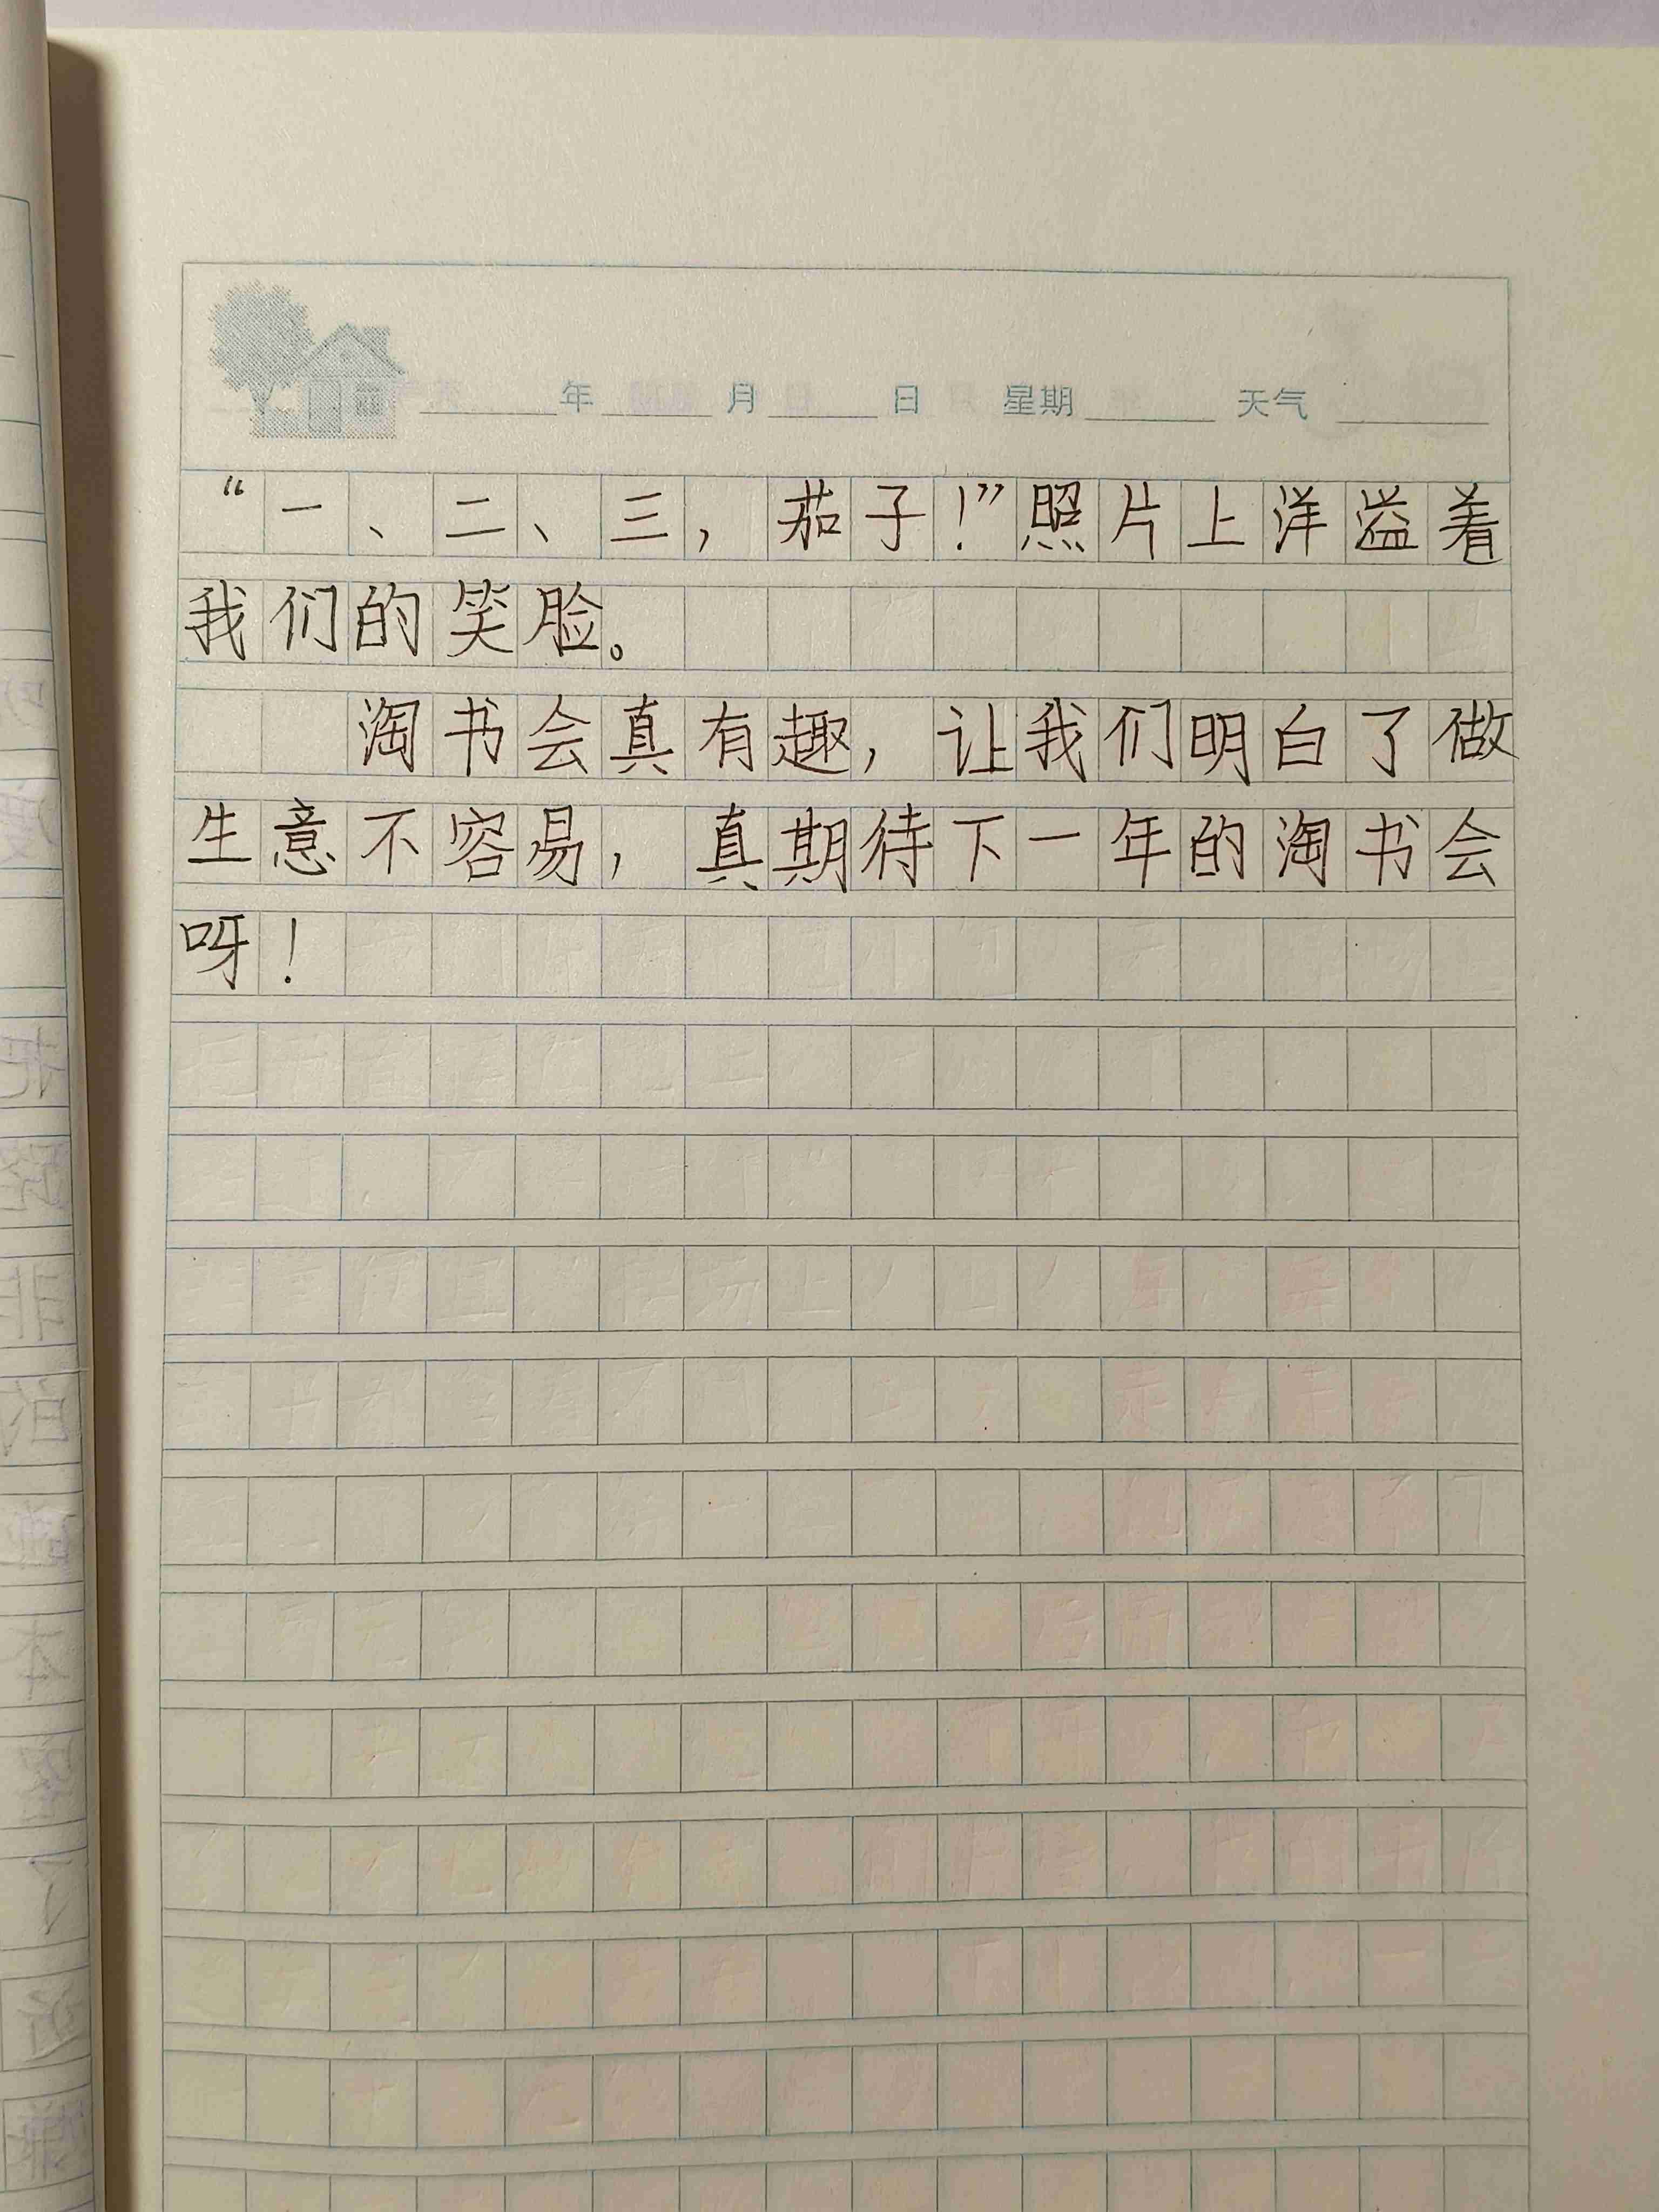 年 月 日 星期 天气
“一、二、三，茄子！”照片上洋溢着
我们的笑脸。
淘书会真有趣，让我们明白了做
生意不容易，真期待下一年的淘书会
呀！